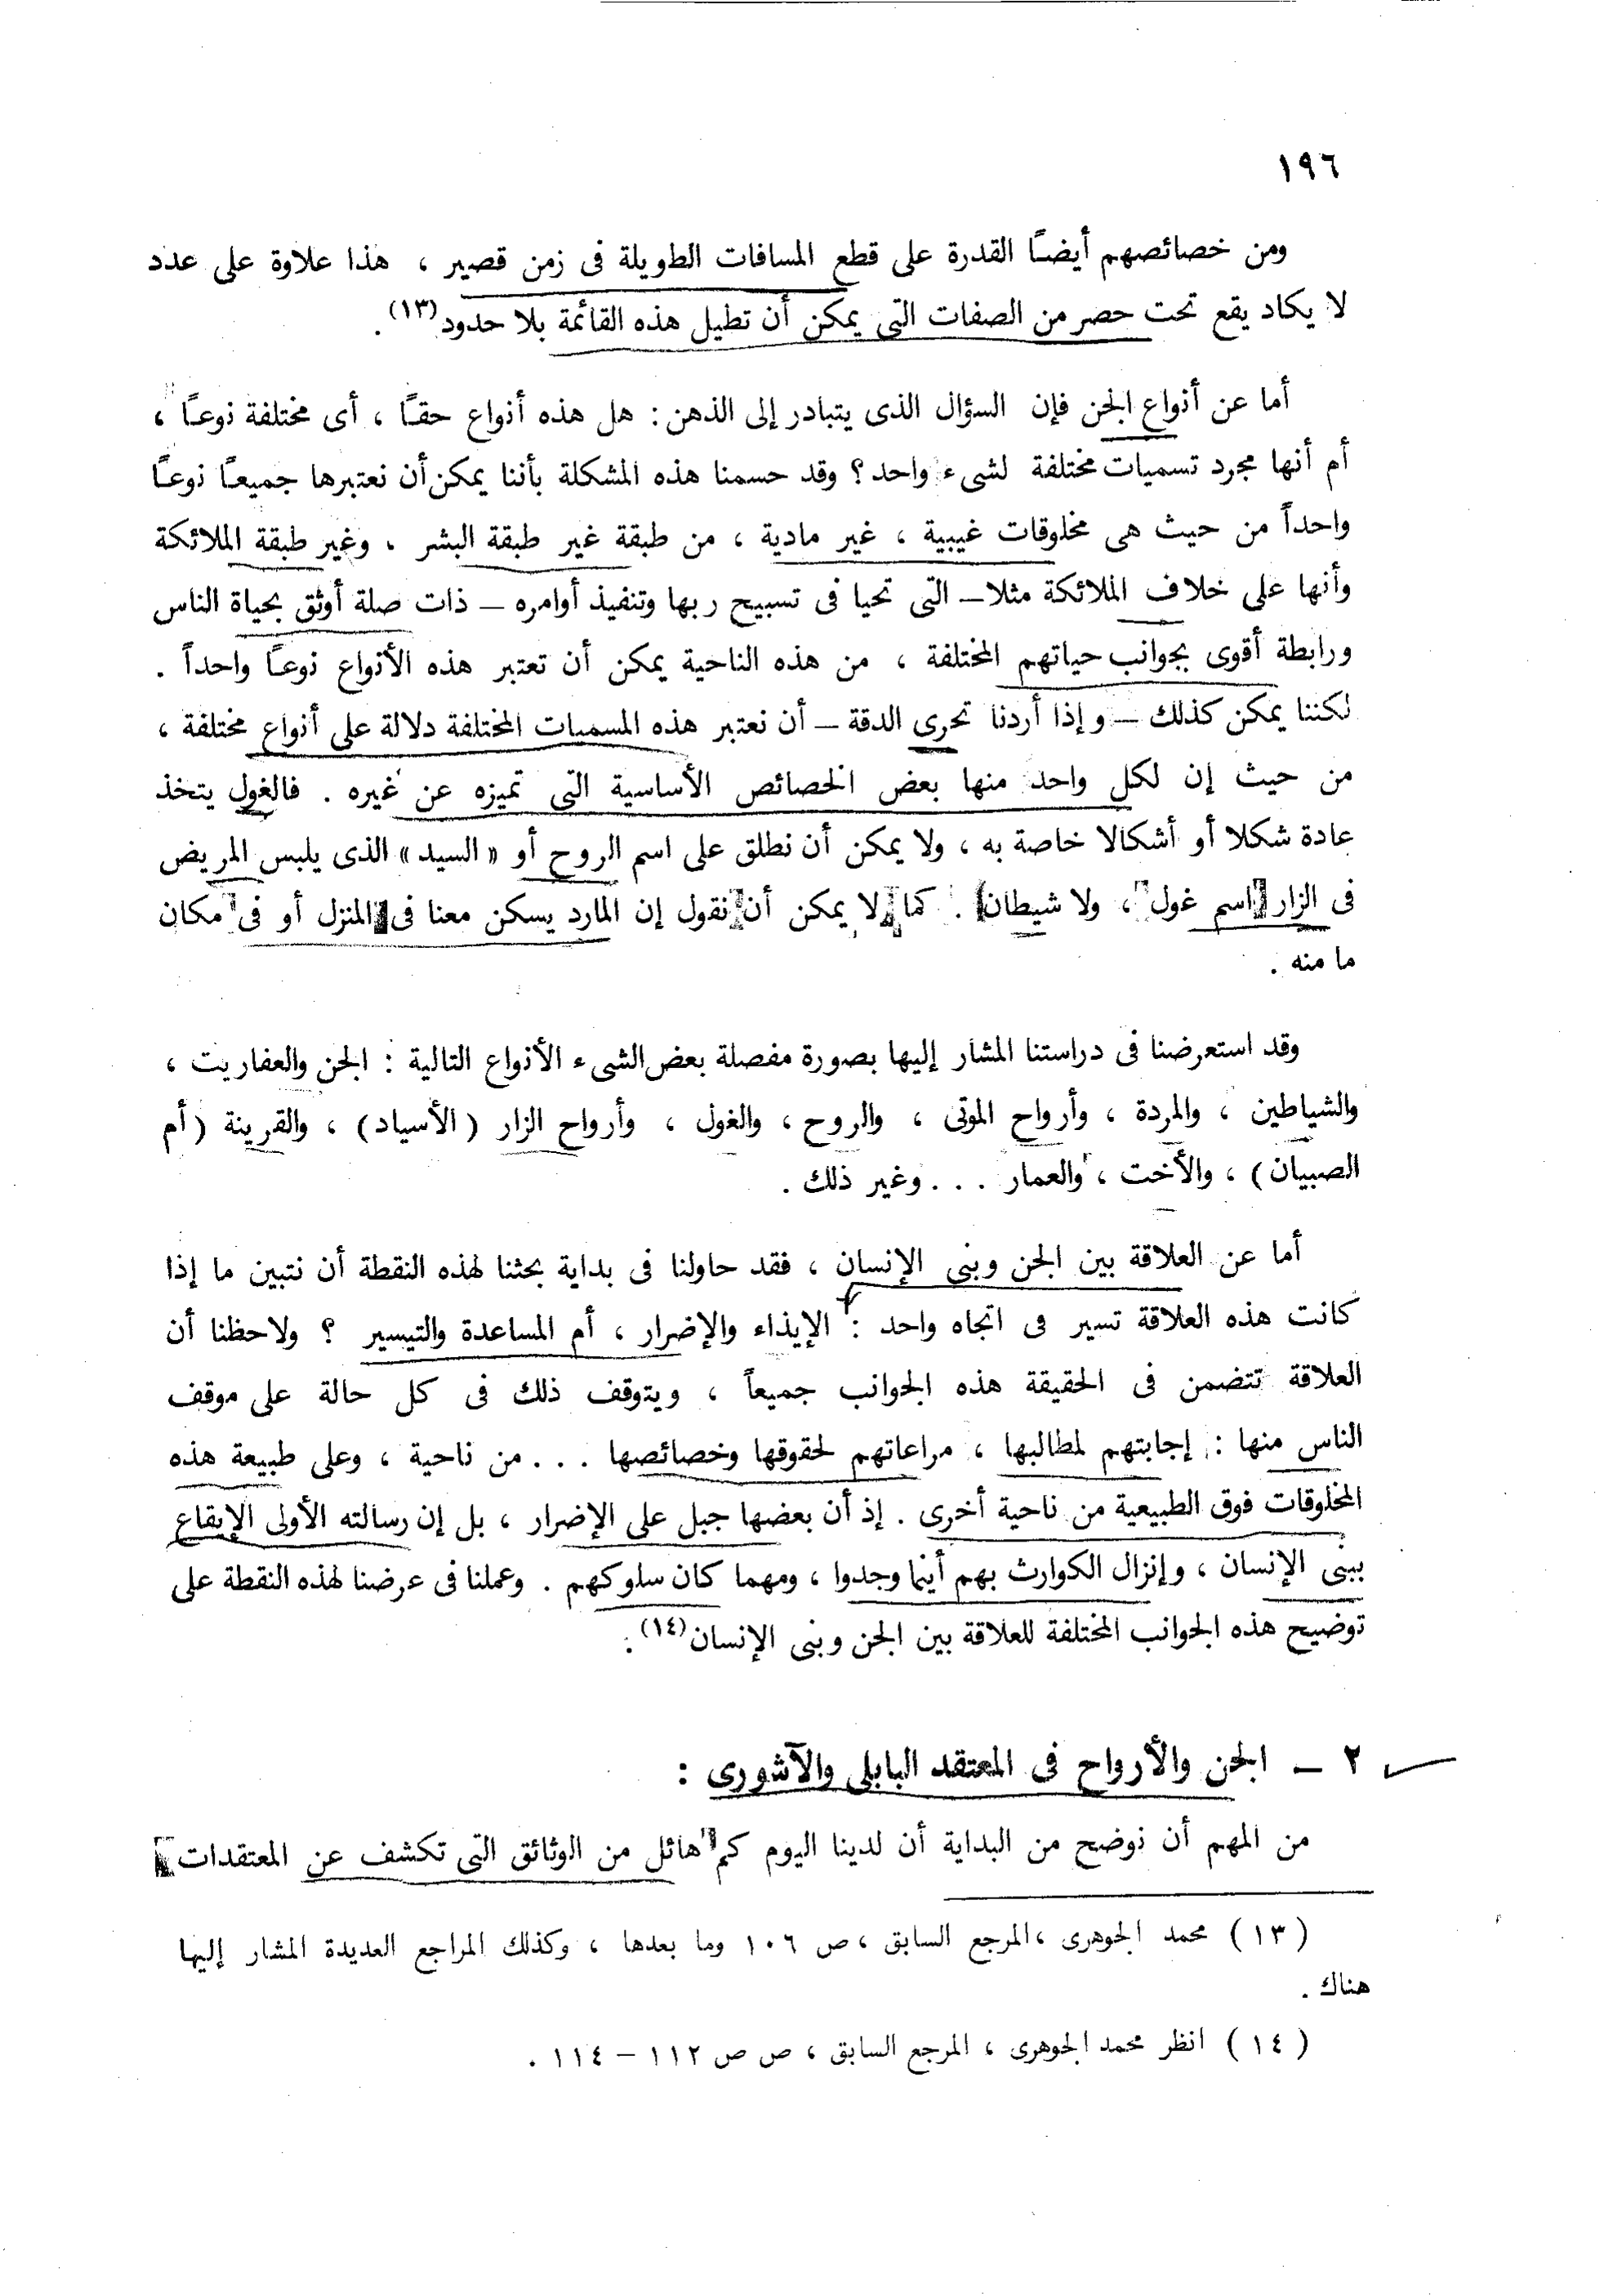 ١٩٦
ومن خصائصهم أيضـًا القدرة على قطع المسافات الطويلة فى زمن قصير ، هذا علاوة على عدد
لا يكاد يقع تحت حصر من الصفات التى يمكن أن تطيل هذه القائمة بلا حدود(١٣) .
أما عن أنواع الجن فإن السؤال الذى يتبادر إلى الذهن : هل هذه أنواع حقـًا ، أى مختلفة نوعـًا ،
أم أنها مجرد تسميات مختلفة لشىء واحد ؟ وقد حسمنا هذه المشكلة بأننا يمكن أن نعتبرها جميعـًا نوعـًا
واحداً من حيث هى مخلوقات غيبية ، غير مادية ، من طبقة غير طبقة البشر ، وغير طبقة الملائكة
وأنها على خلاف الملائكة مثلا – التى تحيا فى تسبيح ربها وتنفيذ أوامره – ذات صلة أوثق بحياة الناس
ورابطة أقوى بجوانب حياتهم المختلفة ، من هذه الناحية يمكن أن تعتبر هذه الأنواع نوعـًا واحداً .
لكننا يمكن كذلك – وإذا أردنا تحرى الدقة – أن نعتبر هذه المسميات المختلفة دلالة على أنواع مختلفة ،
من حيث إن لكل واحد منها بعض الخصائص الأساسية التى تميزه عن غيره . فالغول يتخذ
عادة شكلا أو أشكالا خاصة به ، ولا يمكن أن نطلق على اسم الروح أو « السيد » الذى يلبس المريض
فى الزار اسم غول ، ولا شيطان . كما لا يمكن أن نقول إن المارد يسكن معنا فى المنزل أو فى مكان
ما منه .
وقد استعرضنا فى دراستنا المشار إليها بصورة مفصلة بعض الشىء الأنواع التالية : الجن والعفاريت ،
والشياطين ، والمردة ، وأرواح الموتى ، والروح ، والغول ، وأرواح الزار ( الأسياد ) ، والقرينة ( أم
الصبيان ) ، والأخت ، والعمار . . . وغير ذلك .
أما عن العلاقة بين الجن وبنى الإنسان ، فقد حاولنا فى بداية بحثنا لهذه النقطة أن نتبين ما إذا
كانت هذه العلاقة تسير فى اتجاه واحد : الإيذاء والإضرار ، أم المساعدة والتيسير ؟ ولاحظنا أن
العلاقة تتضمن فى الحقيقة هذه الجوانب جميعاً ، ويتوقف ذلك فى كل حالة على موقف
الناس منها : إجابتهم لمطالبها ، مراعاتهم لحقوقها وخصائصها . . . من ناحية ، وعلى طبيعة هذه
المخلوقات فوق الطبيعية من ناحية أخرى . إذ أن بعضها جبل على الإضرار ، بل إن رسالته الأولى الإيقاع
ببنى الإنسان ، وإنزال الكوارث بهم أينما وجدوا ، ومهما كان سلوكهم . وعملنا فى عرضنا لهذه النقطة على
توضيح هذه الجوانب المختلفة للعلاقة بين الجن وبنى الإنسان(١٤) .
٢ – الجن والأرواح فى المعتقد البابلى والآشورى :
من المهم أن نوضح من البداية أن لدينا اليوم كم هائل من الوثائق التى تكشف عن المعتقدات
( ١٣ ) محمد الجوهرى ، المرجع السابق ، ص ١٠٦ وما بعدها ، وكذلك المراجع العديدة المشار إليها
هناك .
( ١٤ ) انظر محمد الجوهرى ، المرجع السابق ، ص ص ١١٢ – ١١٤ .